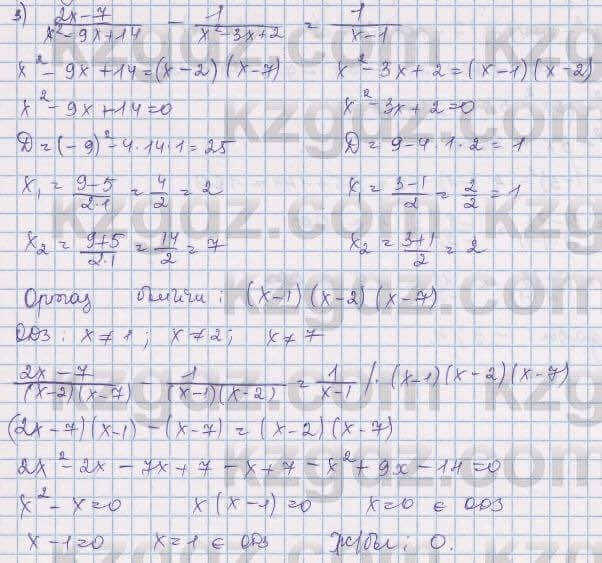 3) (2x-7)/(x²-9x+14) - 1/(x²-3x+2) = 1/(x-1)
x²-9x+14=(x-2)(x-7) x²-3x+2=(x-1)(x-2)
x²-9x+14=0 x²-3x+2=0
D=(-9)²-4·14·1=25 D=9-4·1·2=1
x₁=(9-5)/(2·1)=4/2=2 x₁=(3-1)/2=2/2=1
x₂=(9+5)/(2·1)=14/2=7 x₂=(3+1)/2=2
Ортақ бөлгіш: (x-1)(x-2)(x-7)
ОДЗ: x≠1; x≠2; x≠7
(2x-7)/((x-2)(x-7)) - 1/((x-1)(x-2)) = 1/(x-1) /·(x-1)(x-2)(x-7)
(2x-7)(x-1)-(x-7)=(x-2)(x-7)
2x²-2x-7x+7-x+7-x²+9x-14=0
x²-x=0 x(x-1)=0 x=0 ∈ ОДЗ
x-1=0 x=1 ∈ ОДЗ Ж/бы: 0.
kzgdz.com